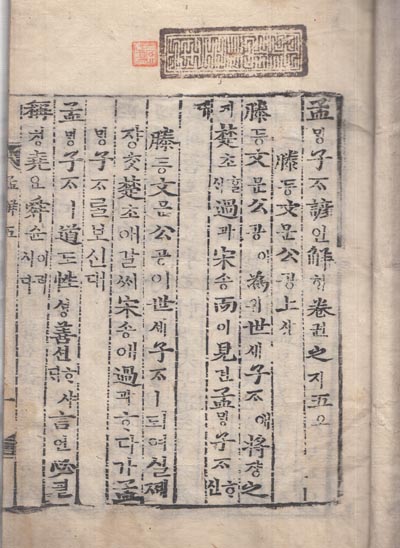 孟ᄆᆡᆼ子ᄌᆞ諺언解ᄒᆡ卷권之지五오
滕등文문公공上샹
滕등文문公공이爲위世셰子ᄌᆞ애將쟝之
지楚초ᄒᆞᆯᄉᆡ過과宋송而이見견孟ᄆᆡᆼ子ᄌᆞᄒᆞ신
대
滕등文문公공이世셰子ᄌᆞㅣ되여실제
쟝ᄎᆞᆺ楚초애갈ᄊᆡ宋송애過과ᄒᆞ다가孟
ᄆᆡᆼ子ᄌᆞᄅᆞᆯ보신대
孟ᄆᆡᆼ子ᄌᆞㅣ道도性셩善션ᄒᆞ샤ᄃᆡ言언必필
稱칭堯요舜순이러시다
孟解五
一